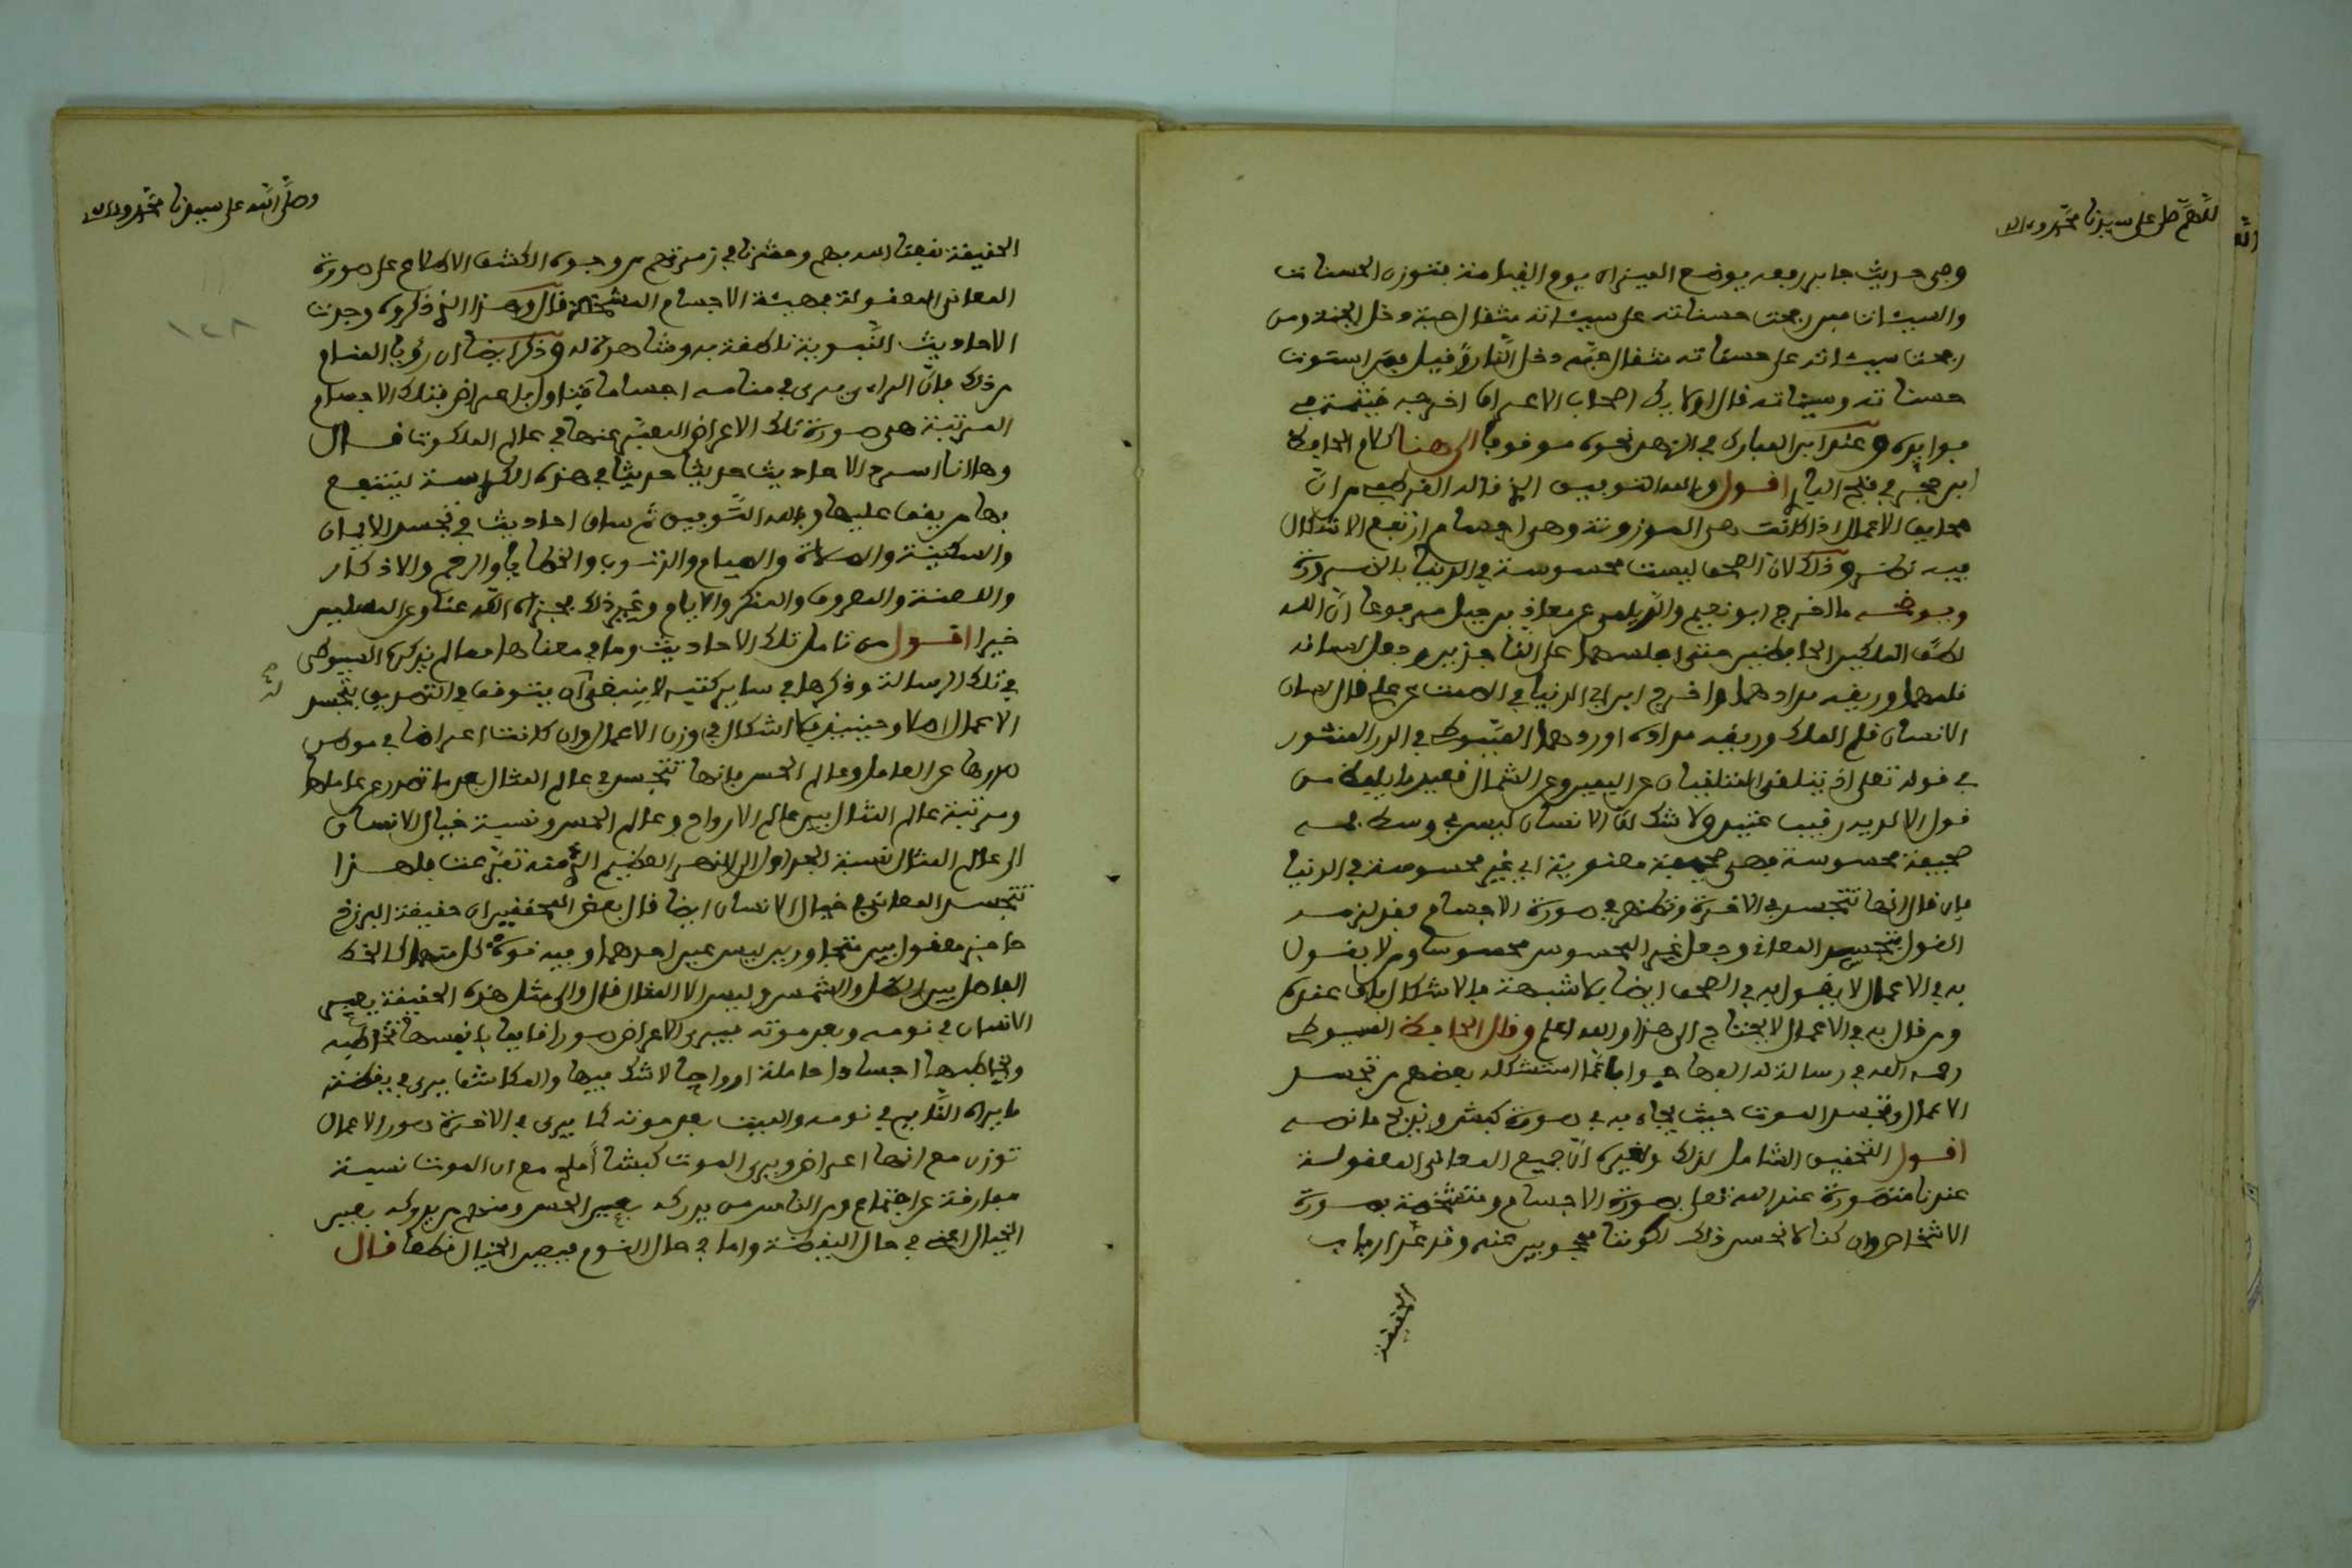 اللهم صل على سيدنا محمد وءاله
وفي حديث جابر رفعه يوضع الميزان يوم القيامة فتوزن الحسنات
والسيئات فمن رجحت حسناته على سيئاته مثقال حبة دخل الجنة ومن
رجحت سيئاته على حسناته مثقال حبة دخل النار قيل فمن استوت
حسناته وسيئاته قال اولايك اصحاب الاعراف اخرجه خيثمة في
فوايده وعند ابن المبارك في الزهد نحوه موقوفا الى هنا كلام الحافظ
ابن حجر في فتح الباري اقول وبالله التوفيق الذي قاله القرطبي من ان
صحايف الاعمال اذا كانت هي الموزونة وهي اجسام ارتفع الاشكال
فيه نظر وذلك لان الصحف ليست محسوسة في الدنيا بالضرورة
ويوضحه ما اخرج ابو نعيم والديلمي عن معاذ بن جبل مرفوعا ان الله
لطف الملكين الحافظين حتى اجلسهما على الناجذين وجعل لسانه
قلمهما وريقه مدادهما واخرج ابن ابي الدنيا في الصمت عن علي قال لسان
الانسان قلم الملك وريقه مداده اوردهما السيوطي في الدر المنثور
في قوله تعلى اذ يتلقى المتلقيان عن اليمين وعن الشمال قعيد ما يلفظ من
قول الا لديه رقيب عتيد ولا شك ان الانسان ليس في وسط فمه
صحيفة محسوسة فهي صحيفة معنوية اي غير محسوسة في الدنيا
فان قال انها تتجسد في الاخرة وتظهر في صورة الاجسام فقد لزمه
القول بتجسد المعاني وجعل غير المحسوس محسوسا ومن لا يقول
به في الاعمال لا يقول به في الصحف ايضا بلا شبهة فالاشكال باق عنده
ومن قال به في الاعمال لا يحتاج الى هذا والله اعلم وقال الحافظ السيوطي
رحمه الله في رسالة له الفها جوابا عما استشكله بعضهم من تجسد
الاعمال وتجسد الموت حيث يجاء به في صورة كبش ويذبح ما نصه
اقول التحقيق الشامل لذلك ولغيره ان جميع المعاني المعقولة
عندنا متصورة عند الله تعلى بصورة الاجسام ومتشخصة بصورة
الاشخاص وان كنا لا نحس ذلك لكوننا محجوبين عنه وقد عد ارباب
الحقيقة
وصلى الله على سيدنا محمد وءاله
الحقيقة نفعنا الله بهم وحشرنا في زمرتهم من وجوه الكشف الاطلاع على صورة
المعاني المعقولة بهيئة الاجسام المشخصة قال وهذا الذي ذكروه وجدت
الاحاديث النبوية ناطقة به وشاهدة له وذكر ايضا ان رؤيا المنام
من ذلك فان الراءي يرى في منامه اجساما يتاول باعراض فتلك الاجسام
المرتبة هي صورة تلك الاعراض المعبر عنها في عالم الملكوت قال
وها انا اسرد الاحاديث حديثا حديثا في هذه الكراسة لينتفع
بها من يقف عليها وبالله التوفيق ثم ساق احاديث في تجسد الايمان
والسكينة والصلاة والصيام والذنوب والخطايا والرحم والاذكار
والحسنة والمعروف والمنكر والايام وغير ذلك فجزاه الله عنا وعن المسلمين
خيرا اقول من تامل تلك الاحاديث وما في معناها مما لم يذكره السيوطي
في تلك الرسالة وذكرها في ساير كتبه لا ينبغي ان يتوقف في التصديق بتجسد
الاعمال اصلا وحينيذ فلا اشكال في وزن الاعمال وان كانت اعراضا في موطن
صدورها عن العامل وعالم الحس فانها تتجسد في عالم المثال بعد ما تصدر عن عاملها
ومرتبة عالم المثال بين عالم الارواح وعالم الحس ونسبة خيال الانسان
الى عالم المثال نسبة الجداول الى النهر العظيم الذي منه تفرعت فلهذا
تتجسد المعاني في خيال الانسان ايضا قال بعض المحققين ان حقيقة البرزخ
حاجز معقول بين متجاورين ليس عين احدهما وفيه قوة كل منهما كالخط
الفاصل بين الظل والشمس وليس الا الخيال قال والى مثل هذه الحقيقة يصير
الانسان في نومه وبعد موته فيرى الاعراض صورا قايمة بانفسها تخاطبه
ويخاطبها اجسادا حاملة ارواحا لا شك فيها والمكاشف يرى في يقظته
ما يراه النايم في نومه والميت بعد موته كما يرى في الاخرة صور الاعمال
توزن مع انها اعراض ويرى الموت كبشا املح مع ان الموت نسبة
مفارقة عن اجتماع ومن الناس من يدركه بعين الحس ومنهم من يدركه بعين
الخيال اعني في حال اليقظة واما في حال النوم فبعين الخيال قطعا قال
١٢٨